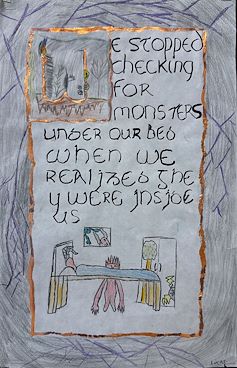 WE STOPPED
CHECKING
FOR
MONSTERS
UNDER OUR BED
WHEN WE
REALIZED THE
Y WERE INSIDE
US